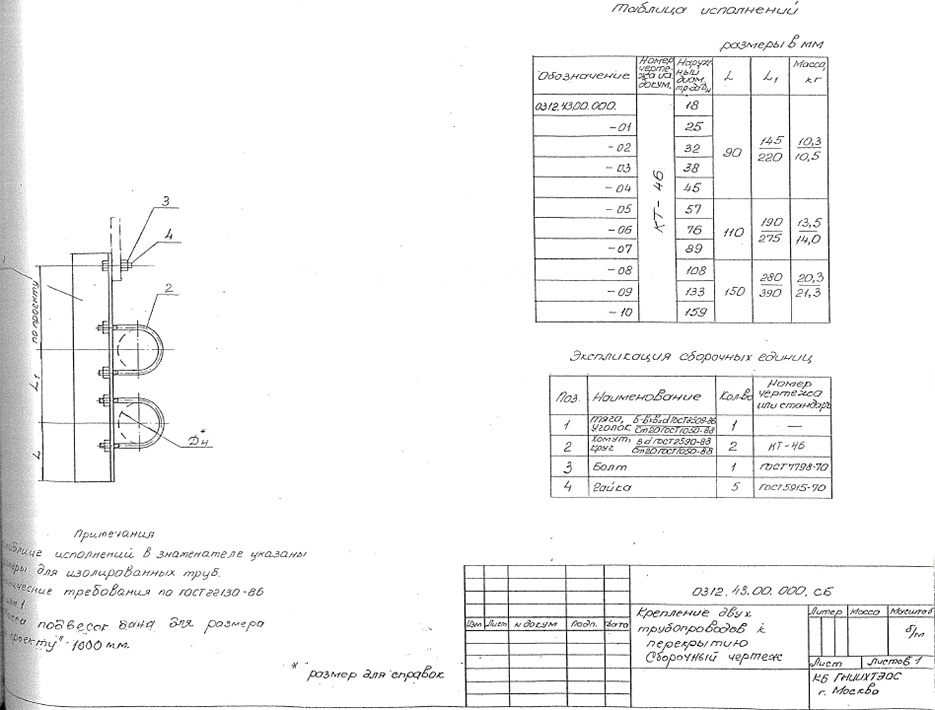 Таблица исполнений
размеры в мм
Обозначение Номер чертежа на докум. Наружный диам. тр-да Dн L L1 Масса, кг
0312.43.00.000. КТ-46 18 90 145/220 10,3/10,5
-01 25
-02 32
-03 38
-04 45
-05 57 110 190/275 13,5/14,0
-06 76
-07 89
-08 108 150 280/390 20,3/21,3
-09 133
-10 159
3
4
1
2
по проекту
L1
L
Dн*
Экспликация сборочных единиц
Поз. Наименование Кол-во Номер чертежа или стандарт
1 тяга, уголок Б-В×В×d ГОСТ8509-86/Ст20 ГОСТ1050-88 1 —
2 хомут, круг В d ГОСТ2590-88/Ст20 ГОСТ1050-88 2 КТ-46
3 Болт 1 ГОСТ7798-70
4 Гайка 5 ГОСТ5915-70
Примечания
таблице исполнений в знаменателе указаны
для изолированных труб.
требования по ГОСТ22130-86
подвесок дана для размера
проекту" - 1000 мм.
* размер для справок
0312.43.00.000.СБ
Изм Лист N докум Подп. Дата
Крепление двух
трубопроводов к
перекрытию
Сборочный чертеж
Литер Масса Масштаб
б/м
Лист Листов 1
КБ ГНИИХТЭОС
г. Москва